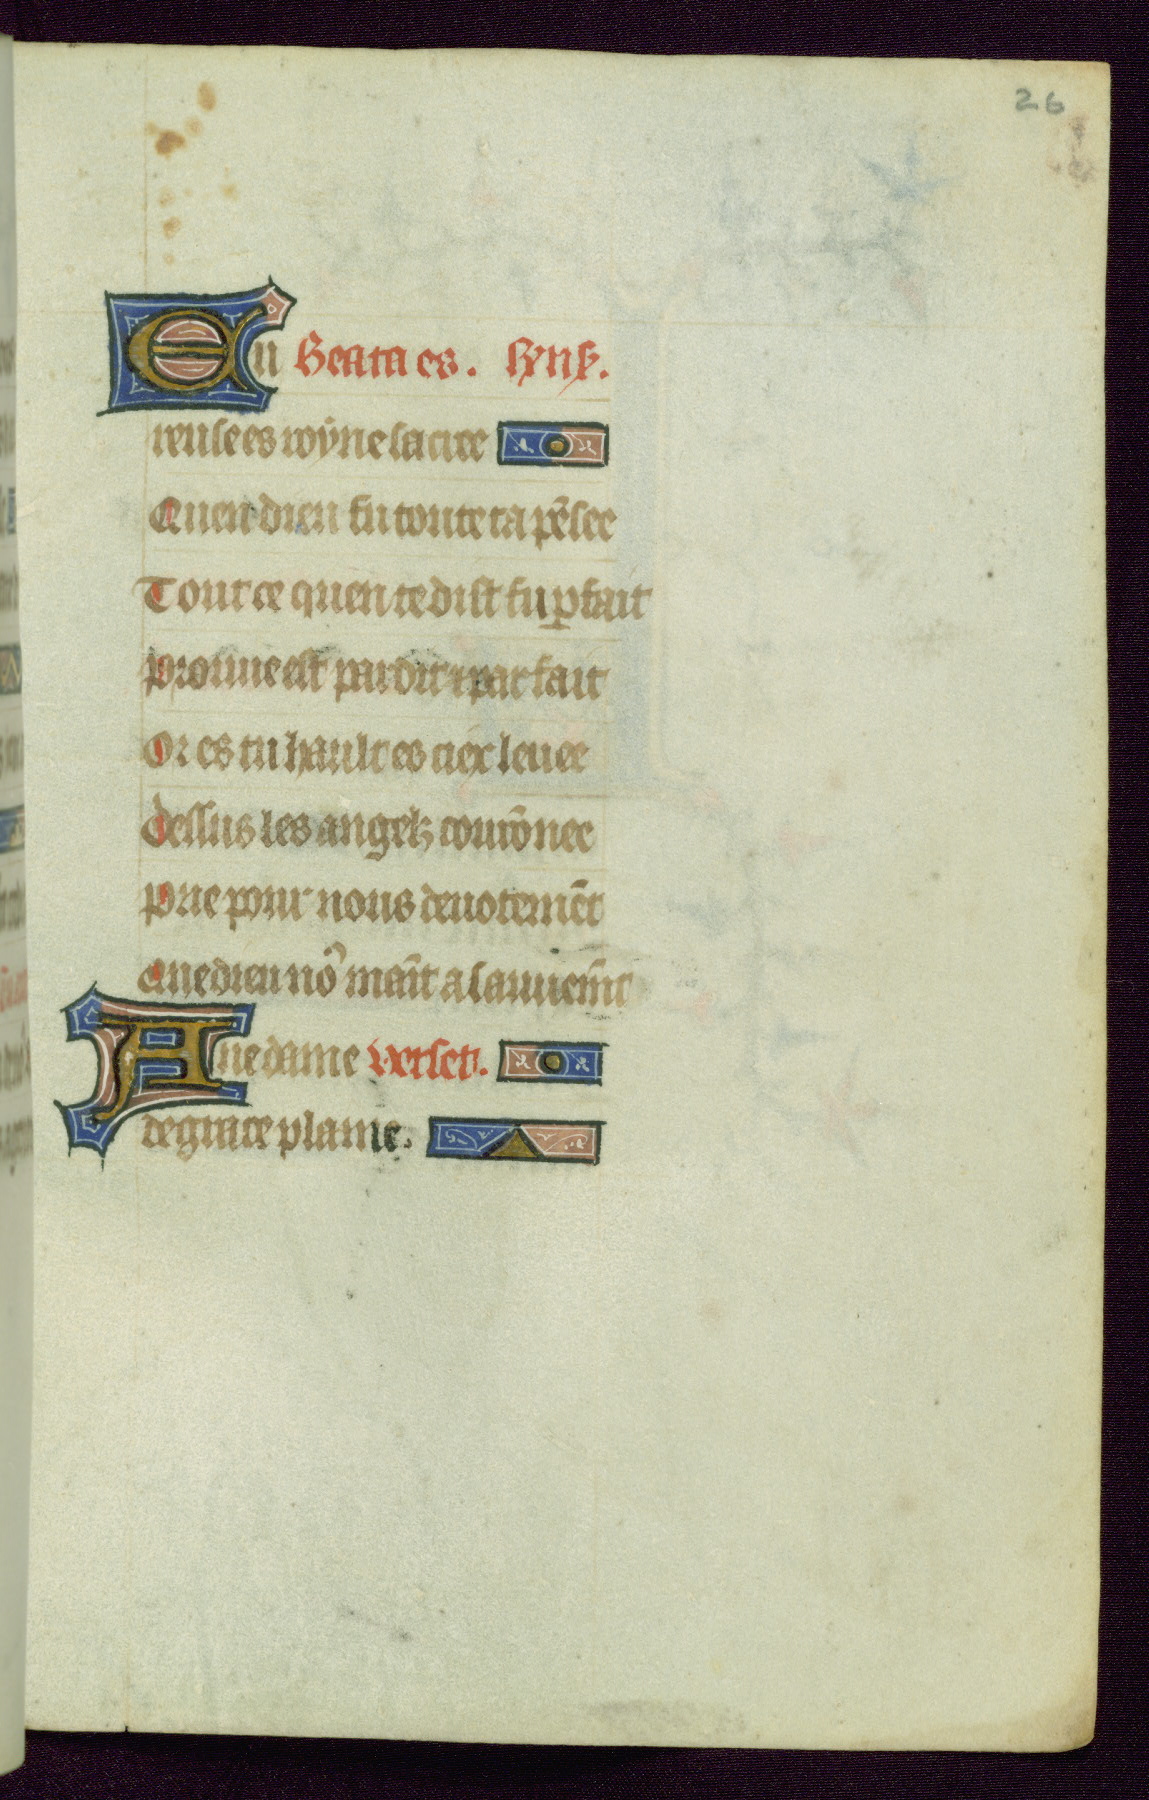 26
Eu Beata es. hyn9.
reuse es royne sacree
Quen dieu fu toute ta pēsee
Tout ce quen te dist fu pfait
Prouue est par dit ⁊ par fait
Or es tu hault es ciex leuee
Dessus les angelz courōnee
Prie pour nous deuotemēt
Que dieu nō maīt a sauuem̄t
Aue dame verset.
de grace plaine.